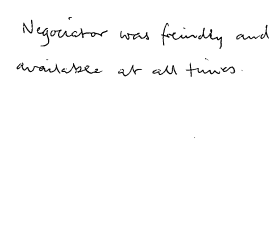 Negociator was freindly and
available at all times.